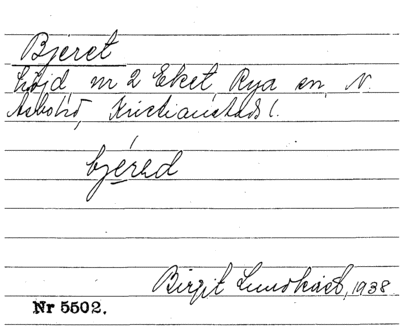 Bjeret
höjd, nr 2 Eket, Rya sn, N.
Åsbo hd, Kristianstads l.
bjéred
Birgit Lundkast, 1938
Nr 5502.